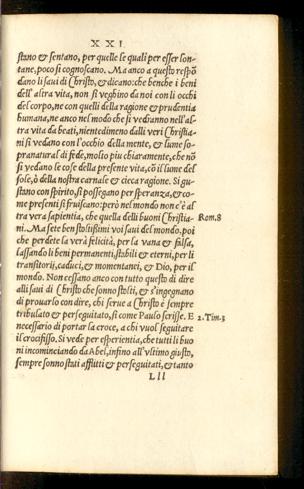 XXI
stano & sentano, per quelle le quali per esser lon-
tane, poco si cognoscano. Ma anco a questo respō
dano li saui di Christo, & dicano: che benche i beni
dell'altra vita, non si veghino da noi con li occhi
del corpo, ne con quelli della ragione & prudentia
humana, ne anco nel modo che si vedranno nell'al-
tra vita da beati, nientedimeno dalli veri Christia-
ni si vedano con l'occhio della mente, & lume so-
pranatural di fede, molio piu chiaramente, che nō
si vedano le cose della presente vita, cō il lume del
sole, ò della nostra carnale & cieca ragione. Si gu-
stano con spirito, si possegano per speranza, & co-
me presenti si fruiscano: però nel mondo non c'è al
tra vera sapientia, che quella delli buoni Christia-
ni. Ma sete ben stoltissimi voi saui del mondo. poi
che perdete la verà felicità, per la vana & falsa,
lassando li beni permanenti, stabili & eterni, per li
transitorij, caduci, & momentanei, & Dio, per il
mondo. Non cessano anco con tutto questo di dire
alli saui di Christo che sonno stolti, & s'ingegnano
di prouarlo con dire, chi serue a Christo è sempre
tribulato & perseguitato, si come Paulo scrisse. E
necessario di portar la croce, a chi vuol seguitare
il crocifisso. Si vede per esperientia, che tutti li buo
ni incominciando da Abel, infino all'vltimo giusto,
sempre sonno stati afflitti & perseguitati, & tanto
Lll
Rom.8
2.Tim.3